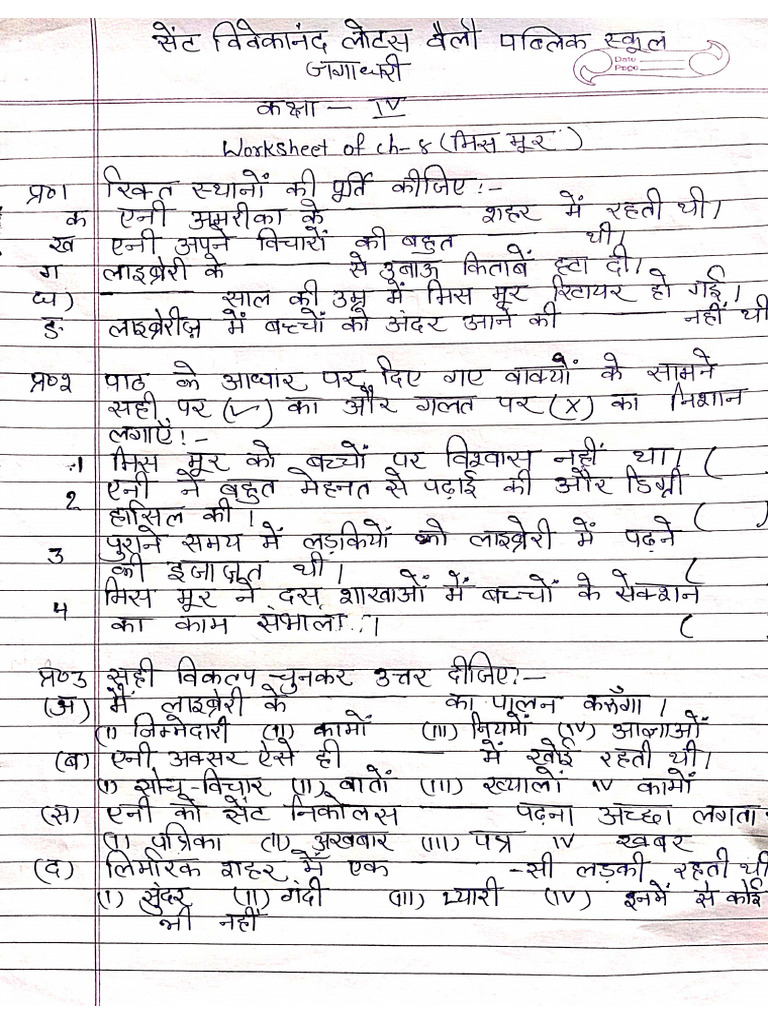 सेंट विवेकानंद लोटस वैली पब्लिक स्कूल
Date
Page
जगाधरी
कक्षा – IV
Worksheet of ch-8 (मिस मूर)
प्र०1 रिक्त स्थानों की पूर्ति कीजिए:-
क एनी अमरीका के ________ शहर में रहती थी।
ख एनी अपने विचारों की बहुत ________ थी।
ग लाइब्रेरी के ________ से उबाऊ किताबें हटा दी।
घ) ________ साल की उम्र में मिस मूर रिटायर हो गई।
ङ लाइब्रेरीज़ में बच्चों को अंदर आने की ________ नहीं थी
प्र०2 पाठ के आधार पर दिए गए वाक्यों के सामने
सही पर (✓) का और गलत पर (X) का निशान
लगाएँ:-
1 मिस मूर को बच्चों पर विश्वास नहीं था। (
2 एनी ने बहुत मेहनत से पढ़ाई की और डिग्री
हासिल की। ( )
3 पुराने समय में लड़कियों को लाइब्रेरी में पढ़ने
की इजाज़त थी। (
4 मिस मूर ने दस शाखाओं में बच्चों के सेक्शन
का काम संभाला। (
प्र०3 सही विकल्प चुनकर उत्तर दीजिए:-
(अ) मैं लाइब्रेरी के ________ का पालन करूँगा।
(I) जिम्मेदारी (II) कामों (III) नियमों (IV) आज्ञाओं
(ब) एनी अक्सर ऐसे ही ________ में खोई रहती थी।
(I) सोच-विचार (II) बातों (III) ख्यालों IV कामों
(स) एनी को सेंट निकोलस ________ पढ़ना अच्छा लगता
(I) पत्रिका (II) अखबार (III) पत्र IV खबर
(द) लिमरिक शहर में एक ________ -सी लड़की रहती थी
(I) सुंदर (II) गंदी (III) प्यारी (IV) इनमें से कोई
भी नहीं